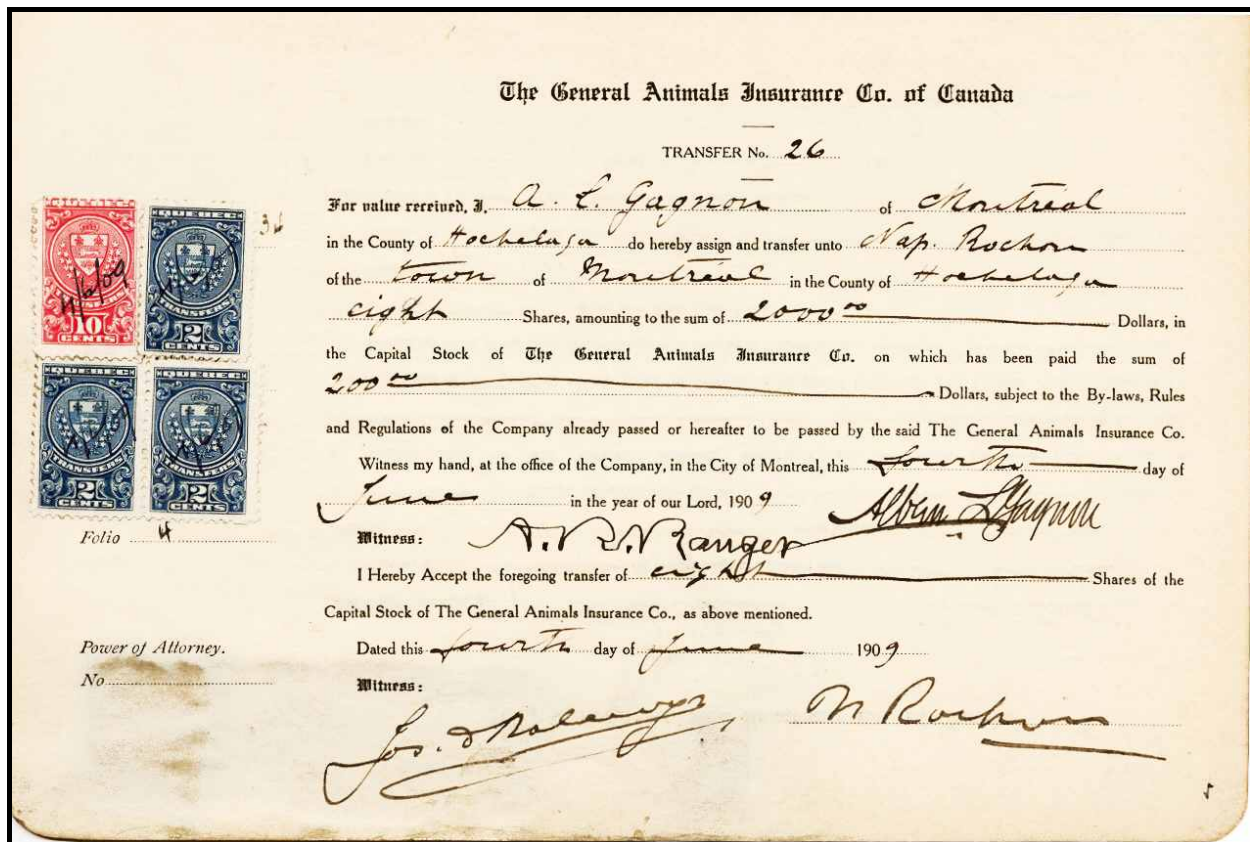 The General Animals Insurance Co. of Canada
TRANSFER No. 26
For value received, I, A. L. Gagnon of Montreal
in the County of Hochelaga do hereby assign and transfer unto Nap. Rochon
of the town of Montreal in the County of Hochelaga
eight Shares, amounting to the sum of 2000.00 Dollars, in
the Capital Stock of The General Animals Insurance Co. on which has been paid the sum of
200.00 Dollars, subject to the By-laws, Rules
and Regulations of the Company already passed or hereafter to be passed by the said The General Animals Insurance Co.
Witness my hand, at the office of the Company, in the City of Montreal, this fourth day of
June in the year of our Lord, 1909
Gagnon
Witness: A. R. Ranger
I Hereby Accept the foregoing transfer of eight Shares of the
Capital Stock of The General Animals Insurance Co., as above mentioned.
Dated this fourth day of June 1909
Witness:
Jos.
N Rochon
QUEBEC
4/6/09
TRANSFERS
10
CENTS
QUEBEC
TRANSFERS
2
CENTS
QUEBEC
TRANSFERS
2
CENTS
QUEBEC
TRANSFERS
2
CENTS
Folio 4
Power of Attorney.
No